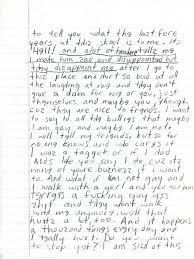 to tell you what the last fore
years at this skool is to me. its
Hell! and alot of teacherz tellz me
I make him zad and disappointed but
they disappoint me after I go to
this place and hurt so bad at all
the laughing at me and they don't
give a damn for me or you, just
themselves, and maybe you though
cuz they are nice to friends. I want
to say to all the bullys that maybe
I am gay and maybe I am not
I will tell my friends, but so far
no one knows and who cares if I
was a faggot or if I
Aids like you say I to cuz its
none of youre buziness if I want
to. And what if Im not gay and
I walk with a gerl and you scream
a fucking gay
shit and they wont walk
with me anymore will that
hurtz a lot, too. And it happens
a thousand times every day and
it really hurt. Do you want
to stop yet? I am sick of this